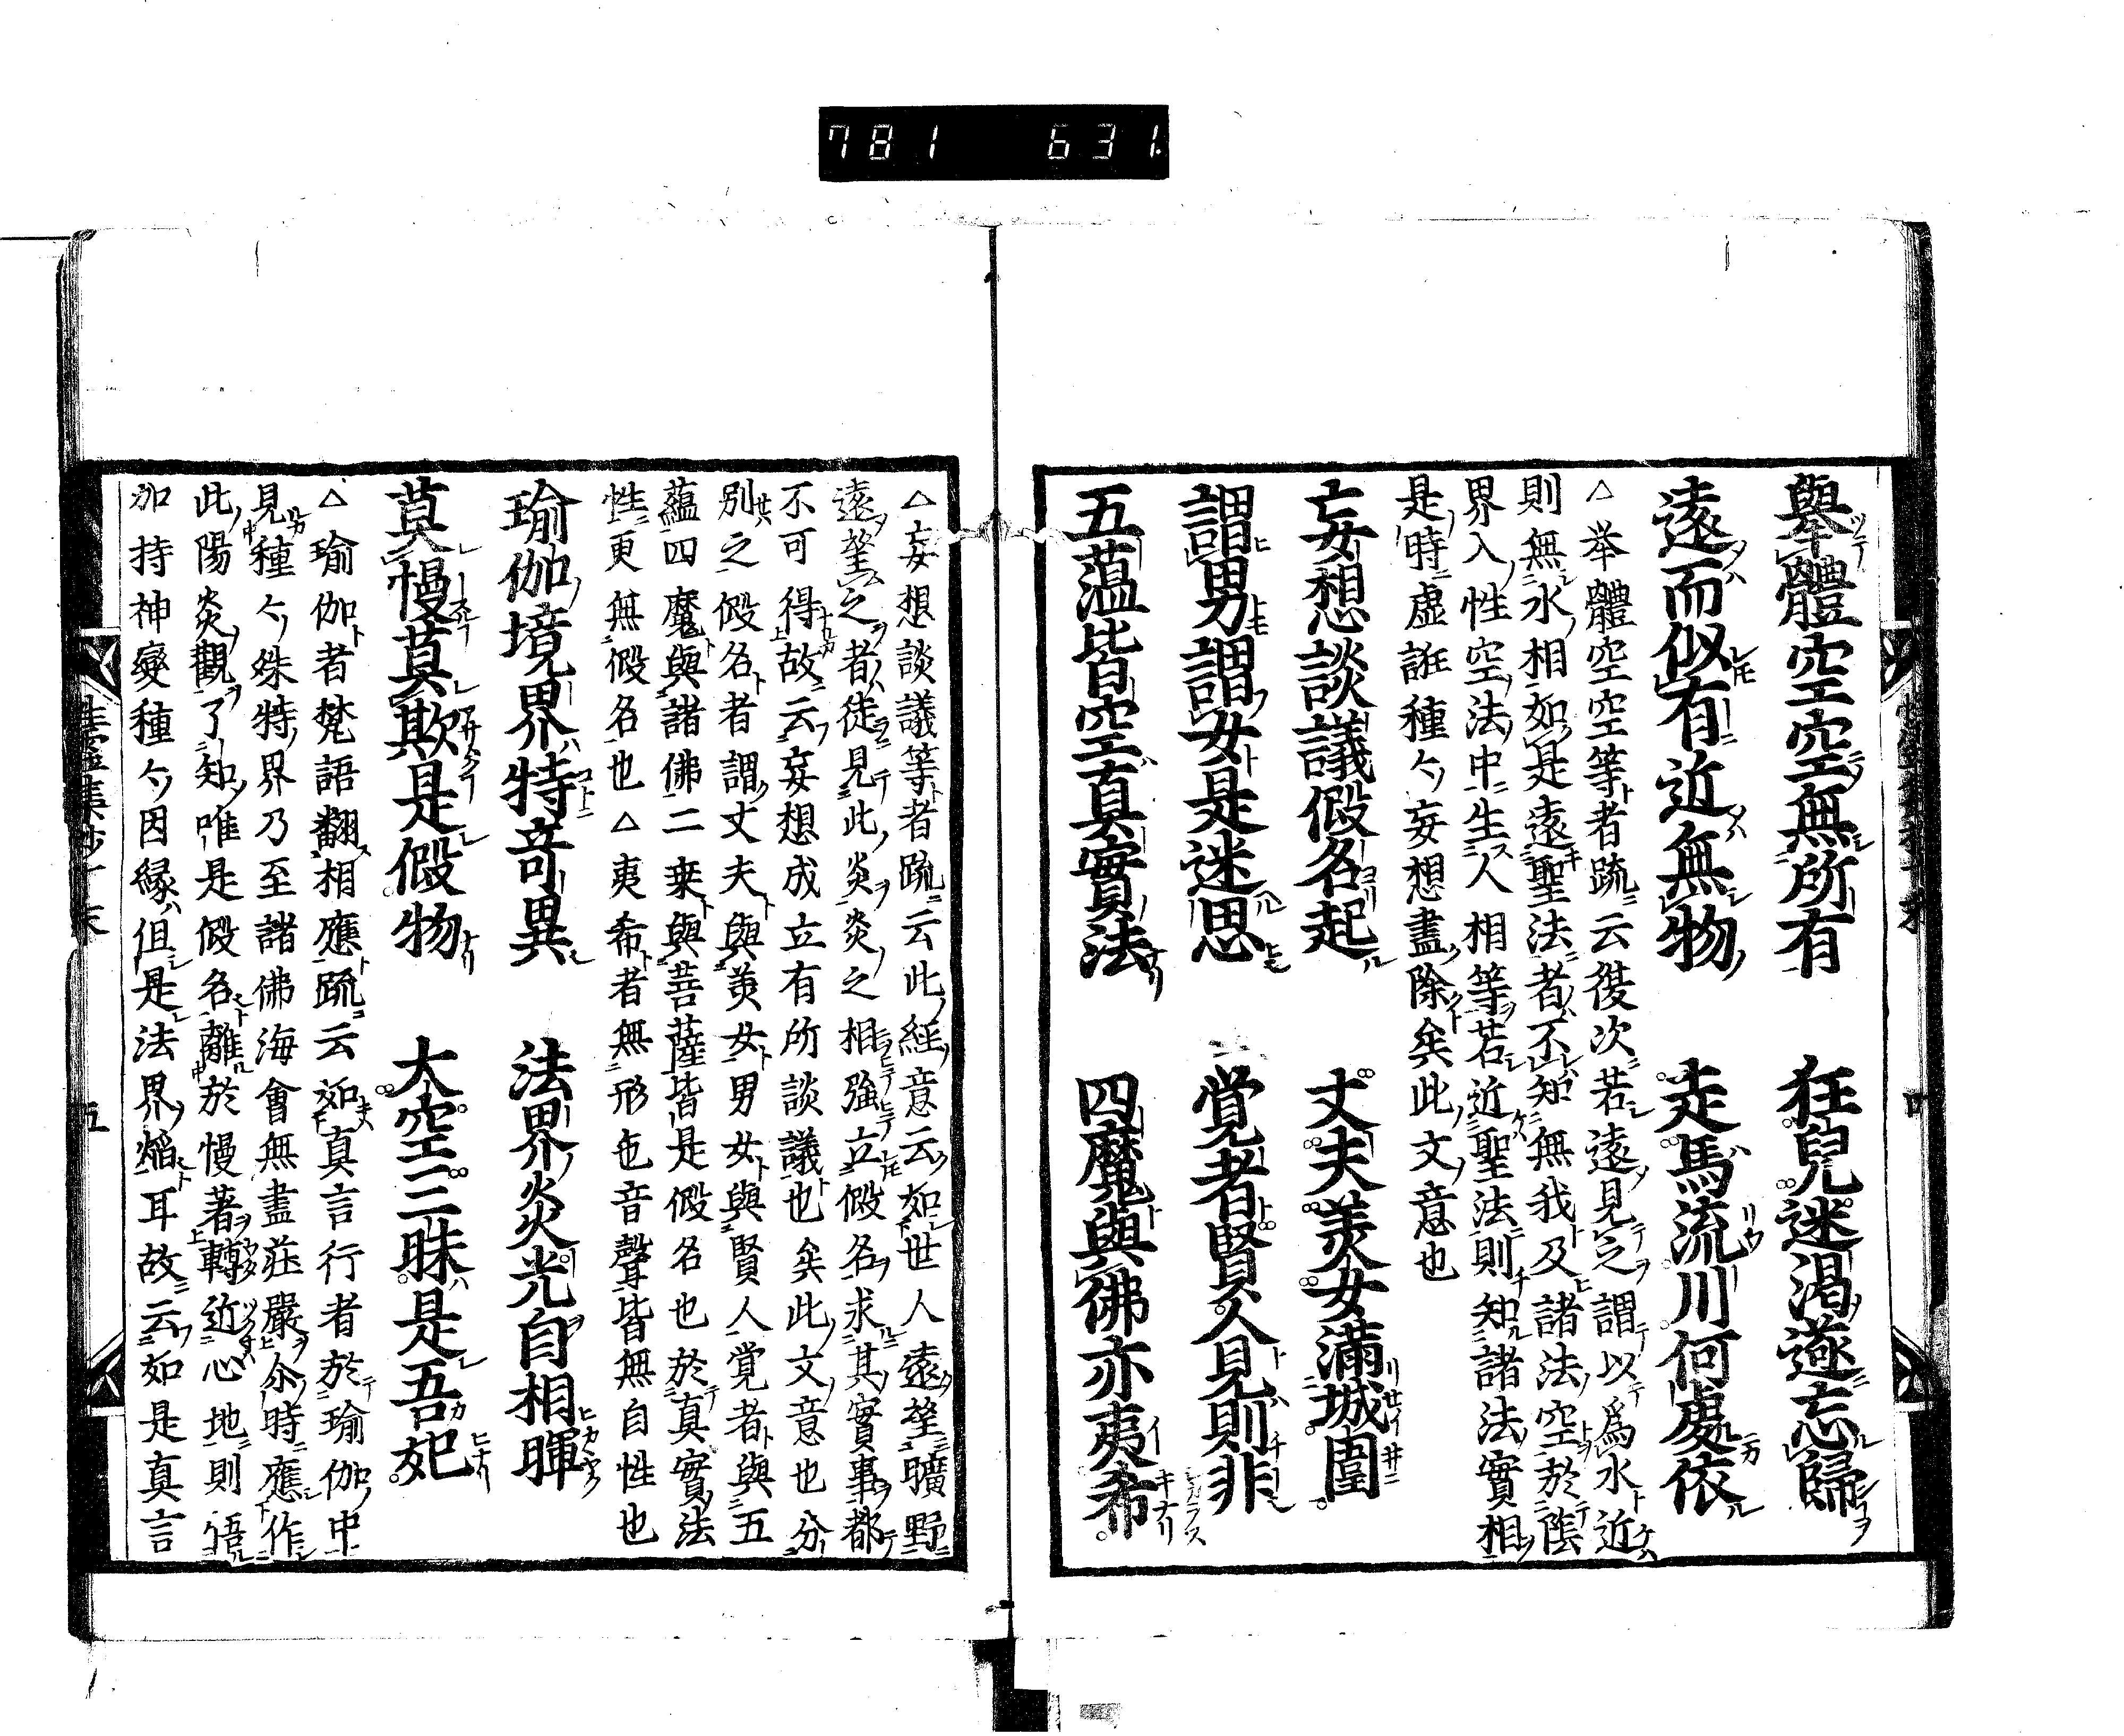 781 631
舉體空空無所有 狂兒迷渴遂忘歸
遠而似有近無物 走馬流川何處依
△举體空空等者疏云復次若遠見之謂以爲水近
則無水相如是遠聖法者不知無我及諸法空於陰
界入性空法中生人相等若近聖法則知諸法實相
是時虚誑種々妄想盡除矣此文意也
妄想談議假名起 丈夫美女滿城圍
謂男謂女是迷思 覺者賢人見則非
五蕴皆空真實法 四魔與佛亦夷希
△妄想談議等者疏云此經意云如世人遠望曠野
遠望之者徒見此炎炎之相強立假名求其實事都
不可得故云妄想成立有所談議也矣此文意也分
別之假名者謂丈夫與美女男女與賢人覚者與五
蘊四魔與諸佛二乗與菩薩皆是假名也於真實法
性更無假名也△夷希者無形也音聲皆無自性也
瑜伽境界特竒異 法界炎光自相暉
莫慢莫欺是假物 大空三昧是吾妃
△瑜伽者梵語翻相應疏云如真言行者於瑜伽中
見種々殊特界乃至諸佛海會無盡莊嚴尒時應作
此陽炎觀了知唯是假名離於慢著轉近心地則悟
加持神變種々因縁但是法界焔耳故云如是真言
五